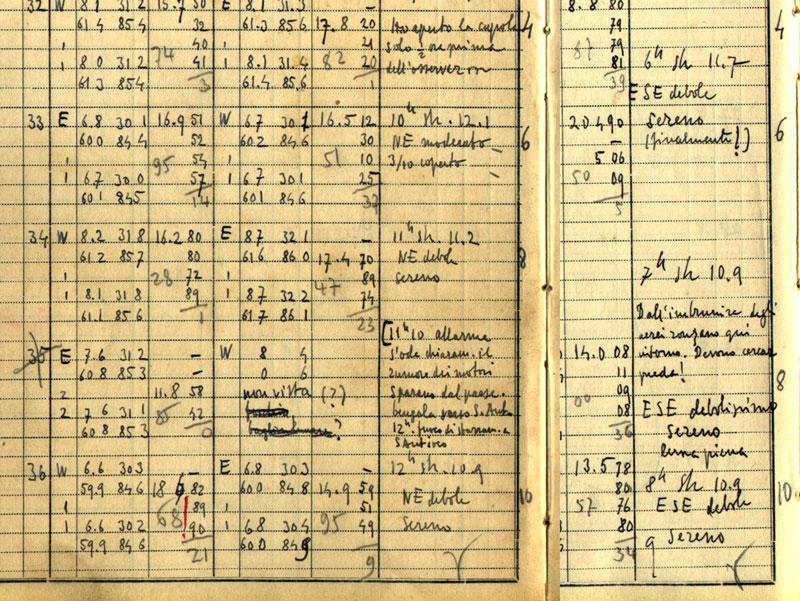 32 W 8.1 31.2 15.7 50 E 8.1 31.3 —
61.2 85.4 32 61.3 85.6 17.8 20 Ho aperto la cupola
1 40 1 21 solo ½ ora prima
1 8.0 31.2 74 41 1 8.1 31.4 82 20 dell'osservazione
61.3 85.4 3 61.4 85.6 1
4
33 E 6.8 30.1 16.9 51 W 6.7 30.1 16.5 12 10h sh. 12.1
60.0 84.4 52 60.2 84.6 30 NE moderato
1 95 54 1 51 10 3/10 coperto
1 6.7 30.0 57 1 6.7 30.1 25
60.1 84.5 14 60.1 84.6
6
34 W 8.2 31.8 16.2 80 E 8.7 32.1 — 11h sh. 11.2
61.2 85.7 80 61.6 86.0 17.4 70 NE debole
1 28 72 1 47 89 sereno
1 8.1 31.8 89 1 8.7 32.2 74
61.1 85.6 1 61.7 86.1 23
8
[11h10 allarme
35 E 7.6 31.2 — W 8 4 s'ode chiaram. il
60.8 85.3 — 0 6 rumore dei motori
2 11.8 58 non vista (?) Sparano dal paese.
2 7.6 31.1 85 42
60.8 85.3 0
36 W 6.6 30.3 — E 6.8 30.3 — 12h sh. 10.9
59.9 84.6 18.6 82 60.0 84.8 14.9 59 NE debole
1 89 1 51
1 6.6 30.2 68 90 1 6.8 30.4 95 49 Sereno
59.9 84.6 21 60.0 84.9 9
10
8.8 80
79
87 79
81 6h sh 11.7
39 ESE debole
4
20.4 90 sereno
— (finalmente!)
5 06
50 09
5
6
7h sh 10.9
Dall'imbrunire degli
aerei ronzano qui
14.0 08 intorno. Devono cercar
11 preda!
09
00 08 ESE debolissimo
36 sereno
luna piena
8
13.5 78
80 8h sh 10.9
57 76 ESE debole
80
34 sereno
10